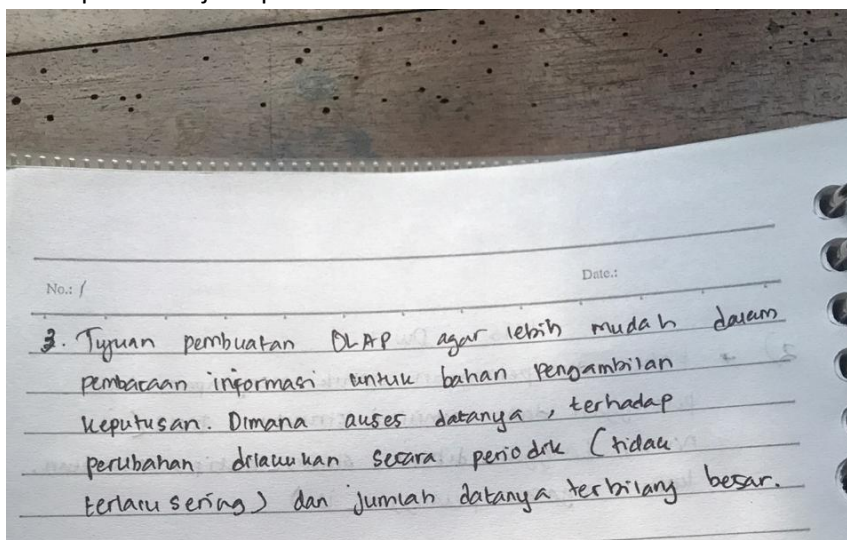 No.: /
Date.:
3. Tujuan pembuatan OLAP agar lebih mudah dalam
pembacaan informasi untuk bahan pengambilan
keputusan. Dimana akses datanya, terhadap
perubahan dilakukan secara periodik (tidak
terlalu sering) dan jumlah datanya terbilang besar.